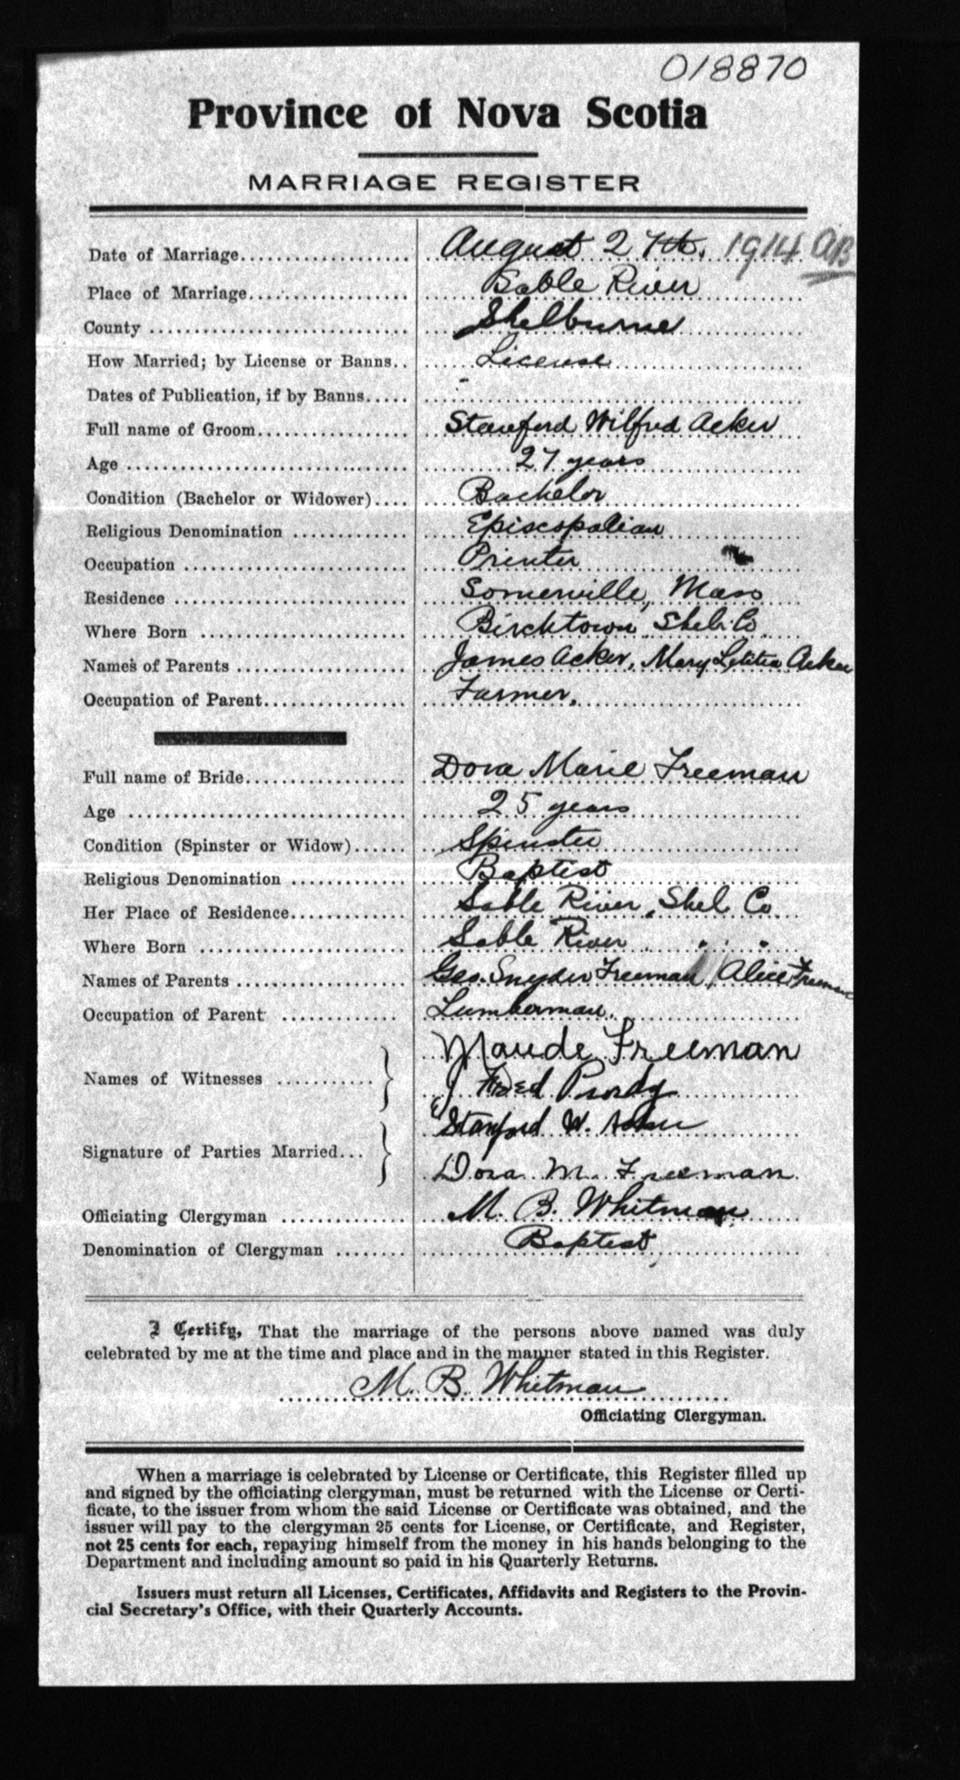 018870
Province of Nova Scotia
MARRIAGE REGISTER
Date of Marriage.................... August 27th, 1914 AB
Place of Marriage................... Sable River
County .............................. Shelburne
How Married; by License or Banns.. License
Dates of Publication, if by Banns..... -
Full name of Groom.................. Stanford Wilfred Acker
Age ................................. 27 years
Condition (Bachelor or Widower).... Bachelor
Religious Denomination ............. Episcopalian
Occupation .......................... Printer
Residence ........................... Somerville, Mass
Where Born ........................ Birchtown Shel. Co.
Names of Parents .................... James Acker, Mary Letitia Acker
Occupation of Parent................. Farmer.
Full name of Bride................... Dora Marie Freeman
Age ................................. 25 years
Condition (Spinster or Widow)...... Spinster
Religious Denomination ............. Baptist
Her Place of Residence.............. Sable River, Shel. Co
Where Born ........................ Sable River " "
Names of Parents .................... Geo. Snyder Freeman, Alice Freeman
Occupation of Parent .............. Lumberman.
Names of Witnesses ........... } Maude Freeman
Fred Purdy
Signature of Parties Married... } Stanford W. Acker
Dora M. Freeman
Officiating Clergyman ............... M. B. Whitman
Denomination of Clergyman ........ Baptist
I Certify, That the marriage of the persons above named was duly
celebrated by me at the time and place and in the manner stated in this Register.
M. B. Whitman
Officiating Clergyman.
When a marriage is celebrated by License or Certificate, this Register filled up
and signed by the officiating clergyman, must be returned with the License or Certi-
ficate, to the issuer from whom the said License or Certificate was obtained, and the
issuer will pay to the clergyman 25 cents for License, or Certificate, and Register,
not 25 cents for each, repaying himself from the money in his hands belonging to the
Department and including amount so paid in his Quarterly Returns.
Issuers must return all Licenses, Certificates, Affidavits and Registers to the Provin-
cial Secretary's Office, with their Quarterly Accounts.